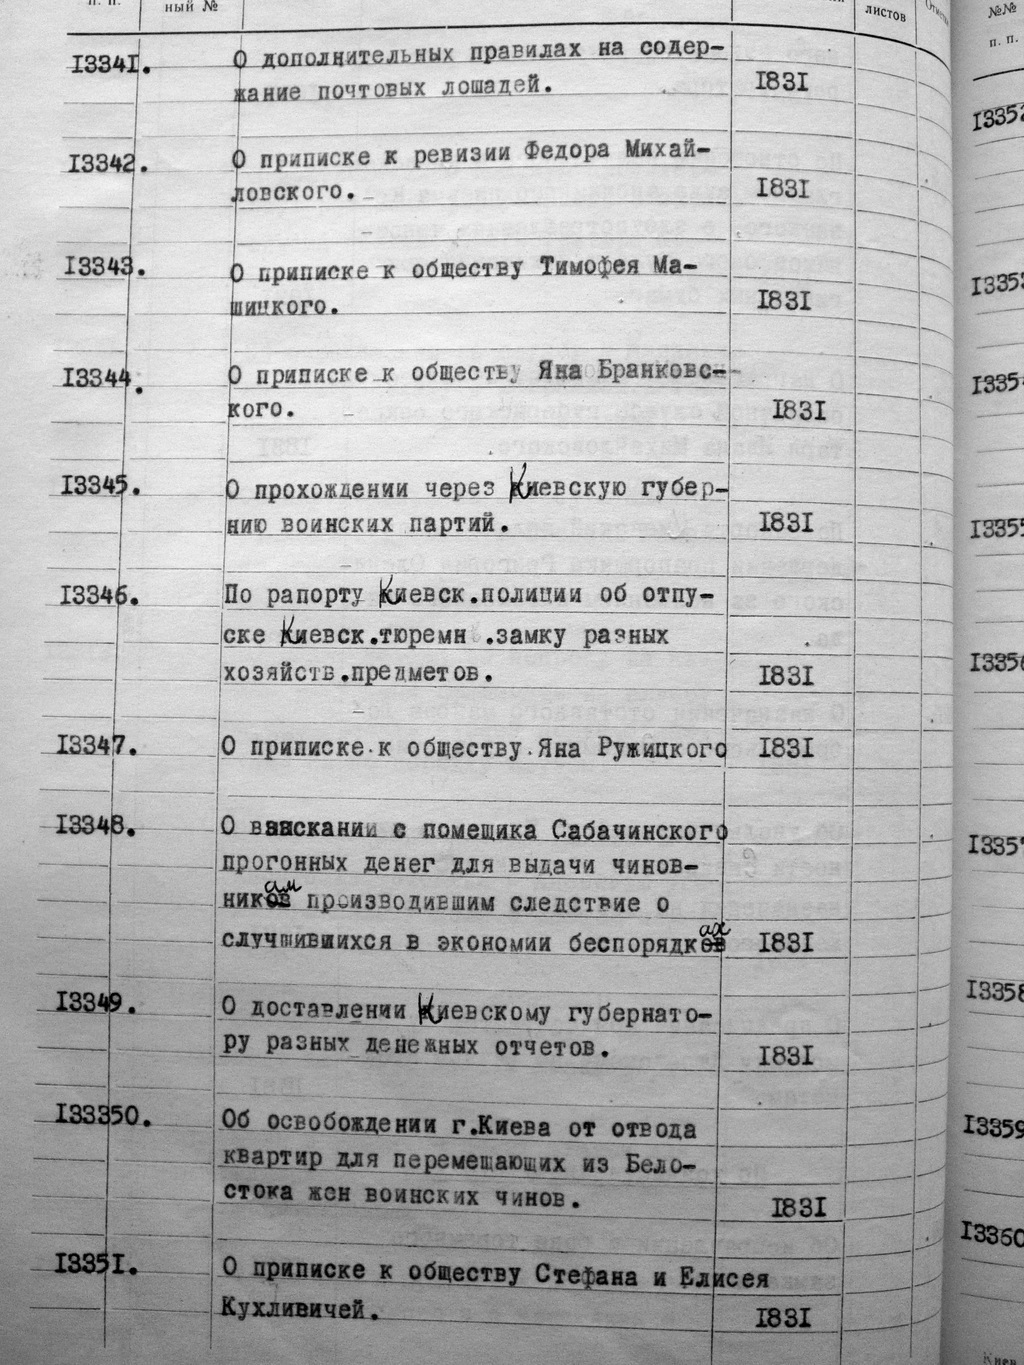 п. п.
ный №
листов
13341.
О дополнительных правилах на содер-
жание почтовых лошадей.
1831
13342.
О приписке к ревизии Федора Михай-
ловского.
1831
13343.
О приписке к обществу Тимофея Ма-
шицкого.
1831
13344.
О приписке к обществу Яна Бранковс-
кого.
1831
13345.
О прохождении через Киевскую губер-
нию воинских партий.
1831
13346.
По рапорту Киевск.полиции об отпу-
ске Киевск.тюремн .замку разных
хозяйств.предметов.
1831
13347.
О приписке к обществу Яна Ружицкого
1831
13348.
О взыскании с помещика Сабачинского
прогонных денег для выдачи чинов-
никам производившим следствие о
случившихся в экономии беспорядках
1831
13349.
О доставлении Киевскому губернато-
ру разных денежных отчетов.
1831
133350.
Об освобождении г.Киева от отвода
квартир для перемещающих из Бело-
стока жен воинских чинов.
1831
13351.
О приписке к обществу Стефана и Елисея
Кухливичей.
1831
№№
п. п.
13352
1335
1335
13355
13356
1335
13358
13359
13360